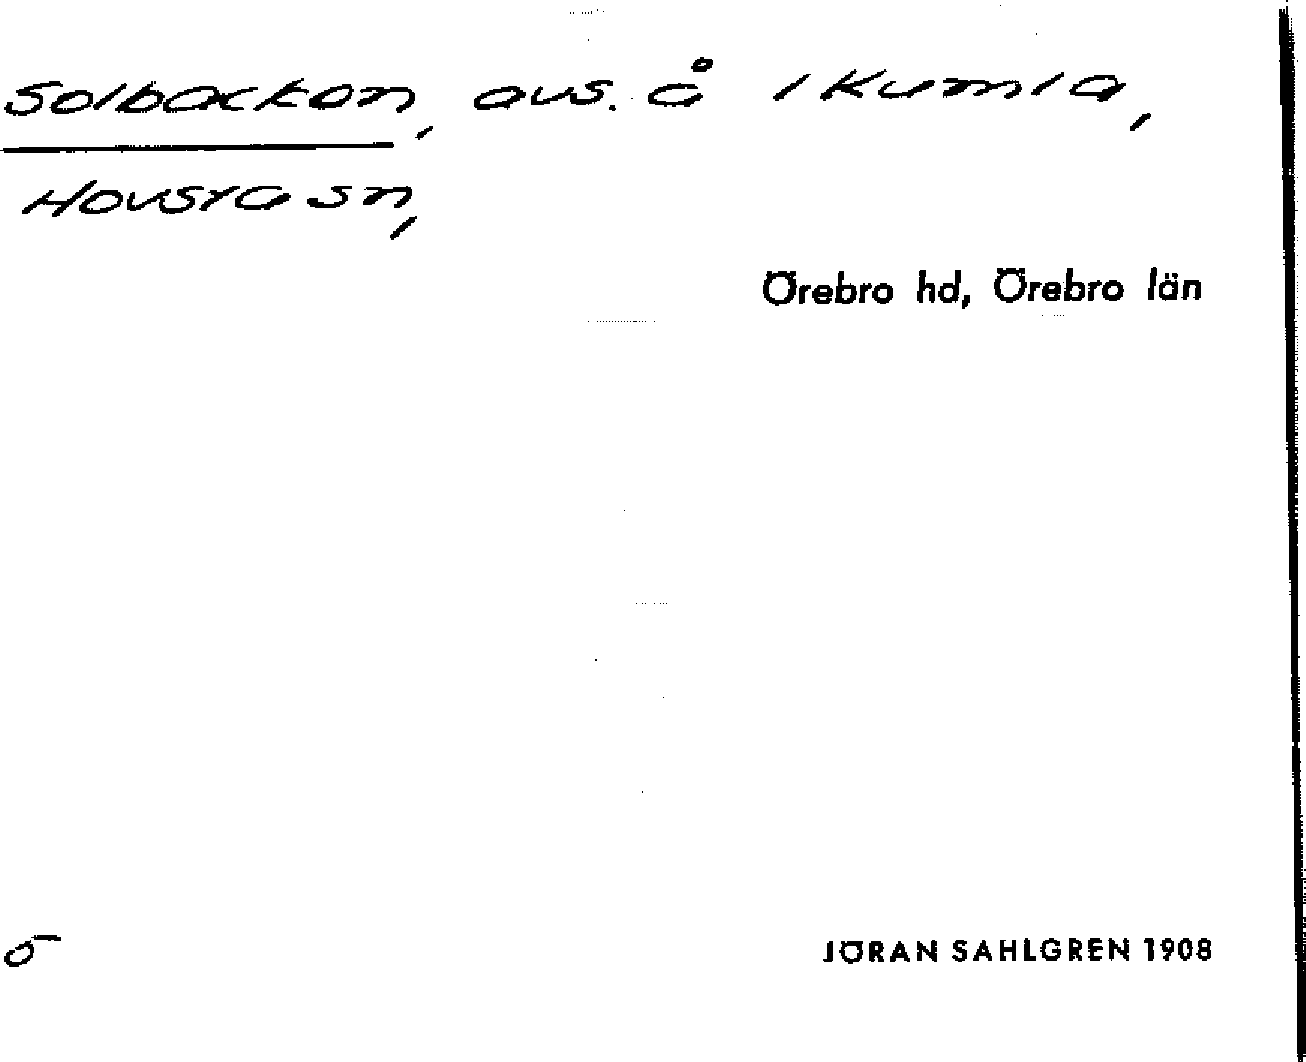 Solbackan, avs. å 1 Kumla,
Hovsta sn,
Örebro hd, Örebro län
JÖRAN SAHLGREN 1908